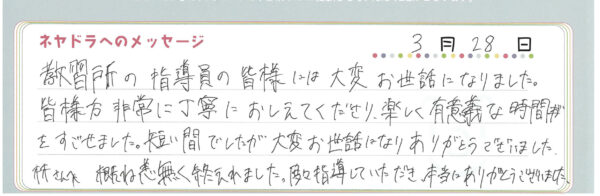 ネヤドラへのメッセージ
3月28日
教習所の指導員の皆様には大変お世話になりました。
皆様方非常に丁寧におしえてくださり、楽しく有意義な時間が
をすごせました。短い間でしたが大変お世話になりありがとうございました。
概ね恙無く終えれました。
指導していただき、本当にありがとうございました。